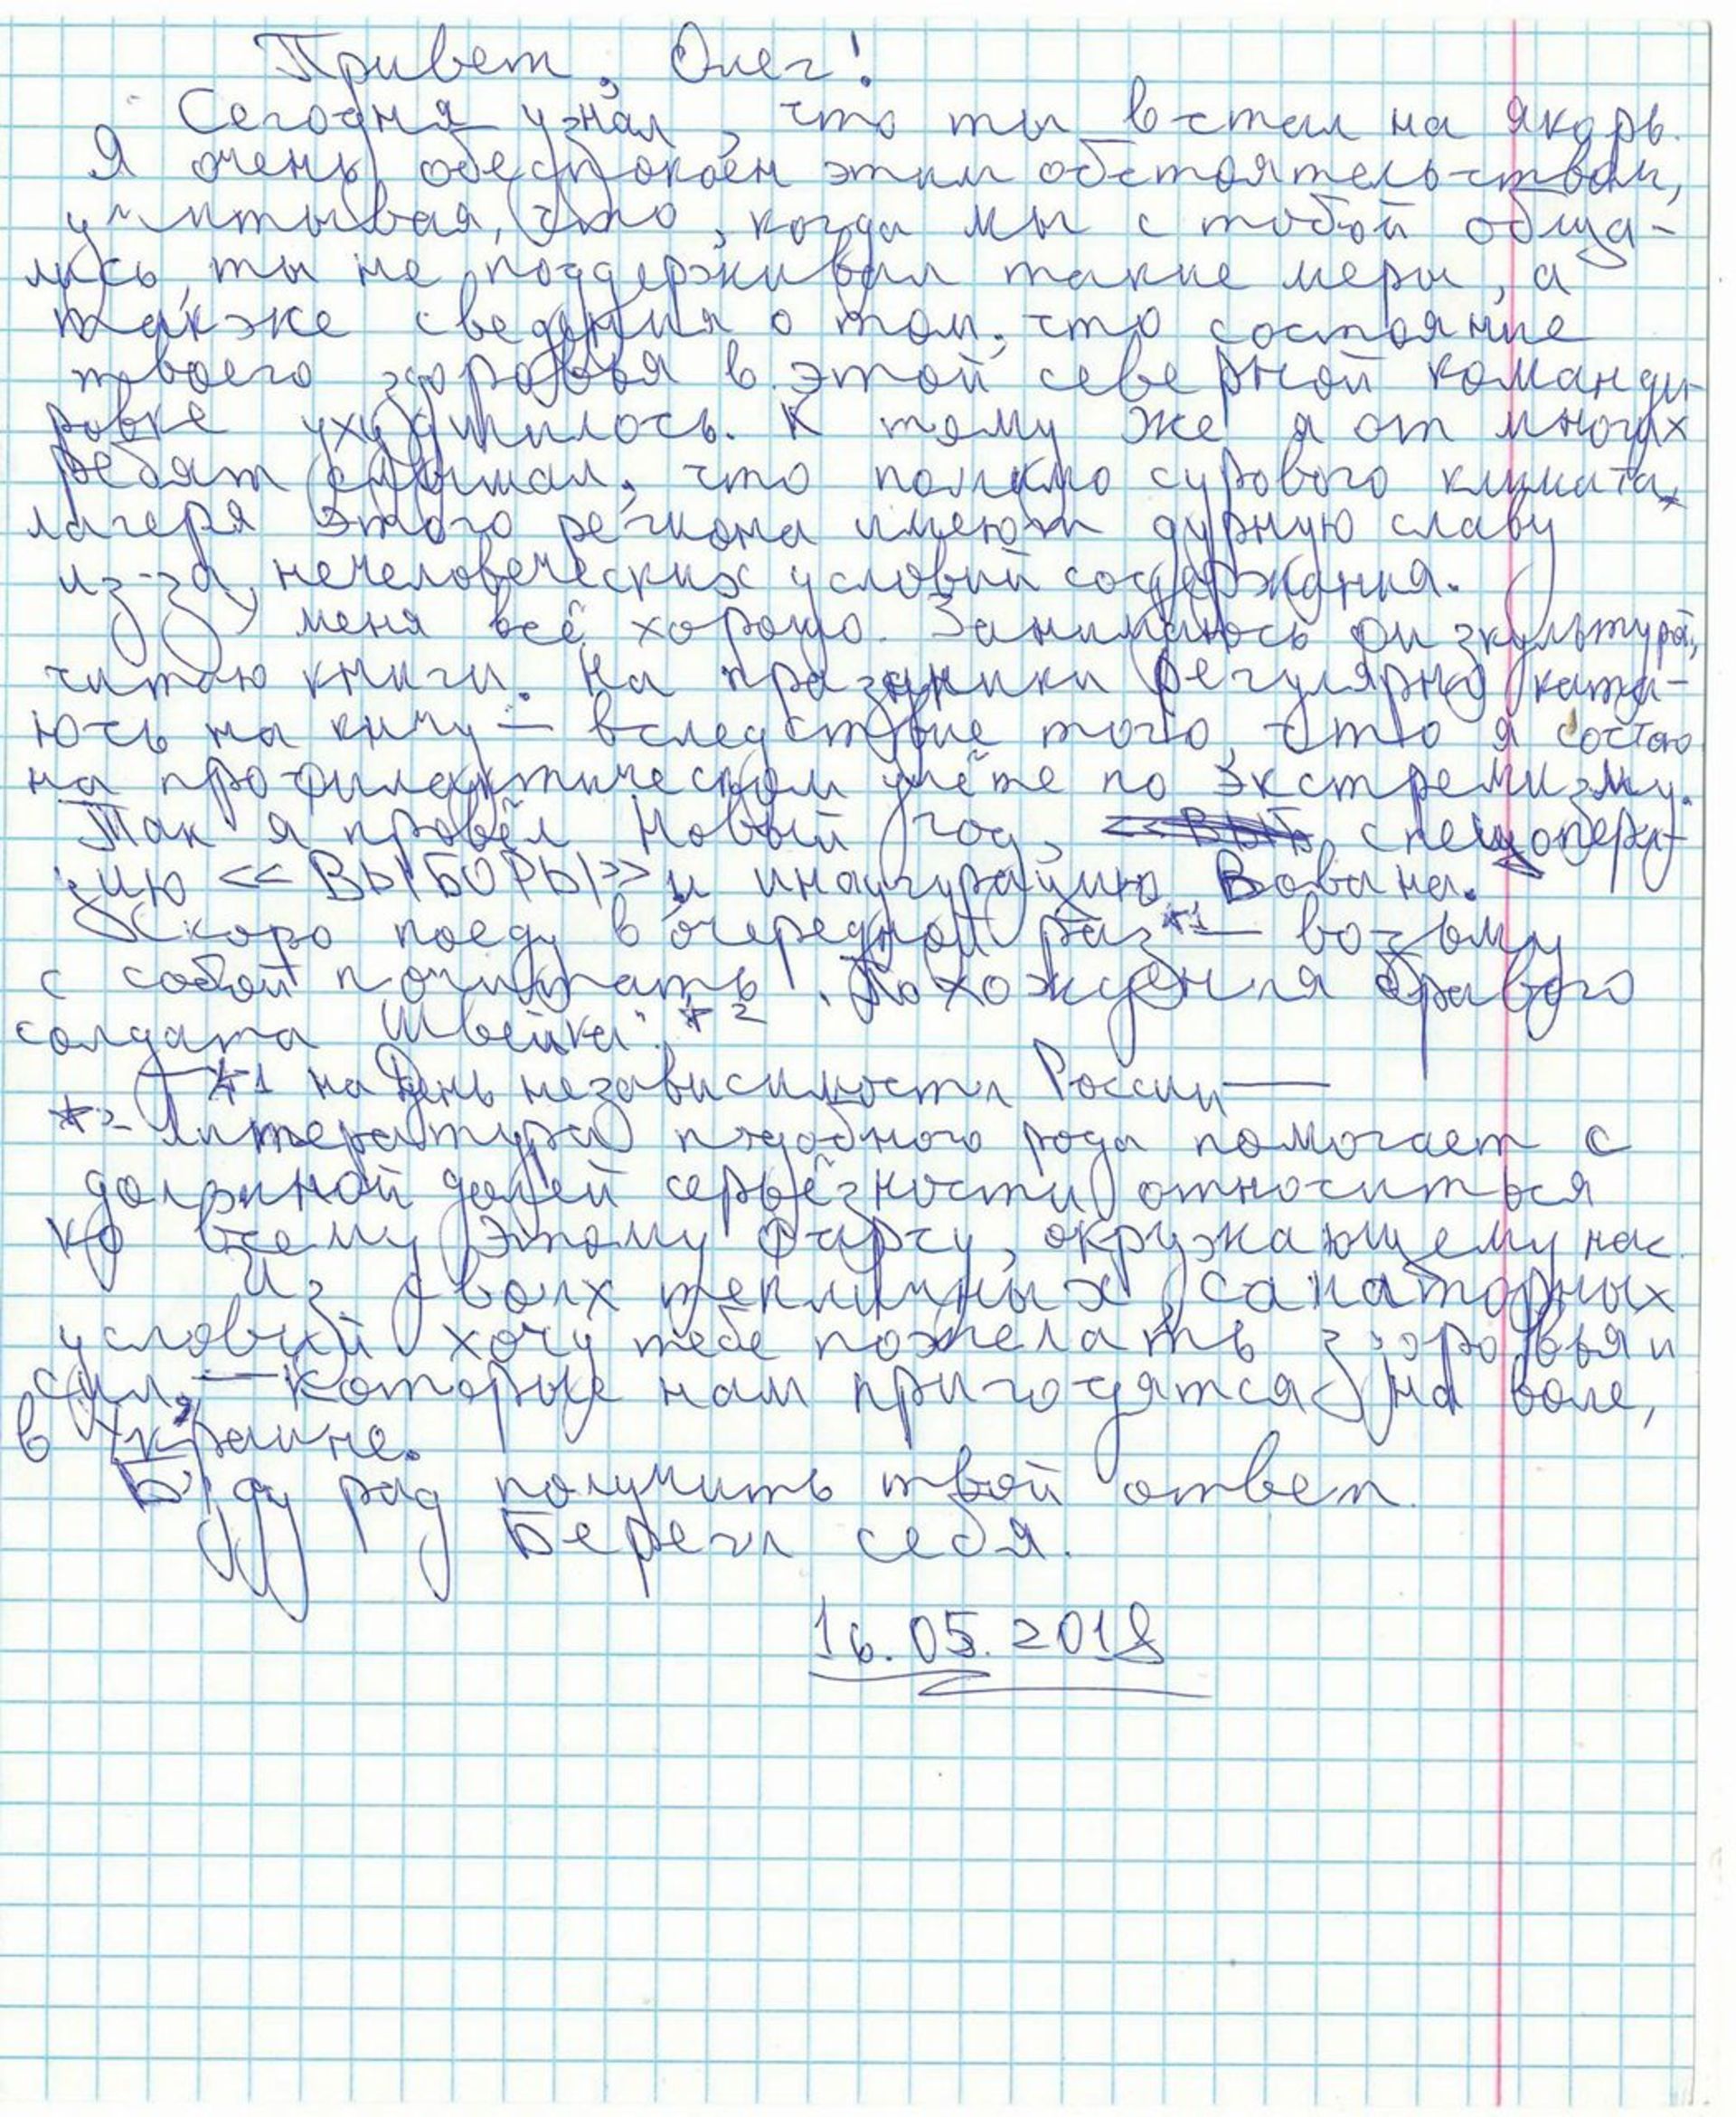 Привет, Олег!
Сегодня узнал, что ты встал на якорь.
Я очень обеспокоен этим обстоятельством,
учитывая, что, когда мы с тобой обща-
лись, ты не поддерживал такие меры, а
также сведения о том, что состояние
твоего здоровья в этой северной команди-
ровке ухудшилось. К тому же я от многих
ребят слышал, что помимо сурового климата,
лагеря этого региона имеют дурную славу
из-за нечеловеческих условий содержания.
У меня всё хорошо. Занимаюсь физкультурой,
читаю книги. На праздники регулярно ката-
юсь на кичу — вследствие того, что я состою
на профилактическом учёте по экстремизму.
Так я провёл Новый год, спецопера-
цию <<ВЫБОРЫ>> и инаугурацию Вована.
Скоро поеду в очередной раз*1 — возьму
с собой почитать "Похождения бравого
солдата Швейка".*2
*1 на День независимости России —
*2 Литература подобного рода помогает с
должной долей серьёзности относиться
ко всему этому фарсу, окружающему нас.
Из своих тепличных, санаторных
условий хочу тебе пожелать здоровья и
сил, — которые нам пригодятся на воле,
в Украине.
Буду рад получить твой ответ.
Береги себя.
16.05.2018